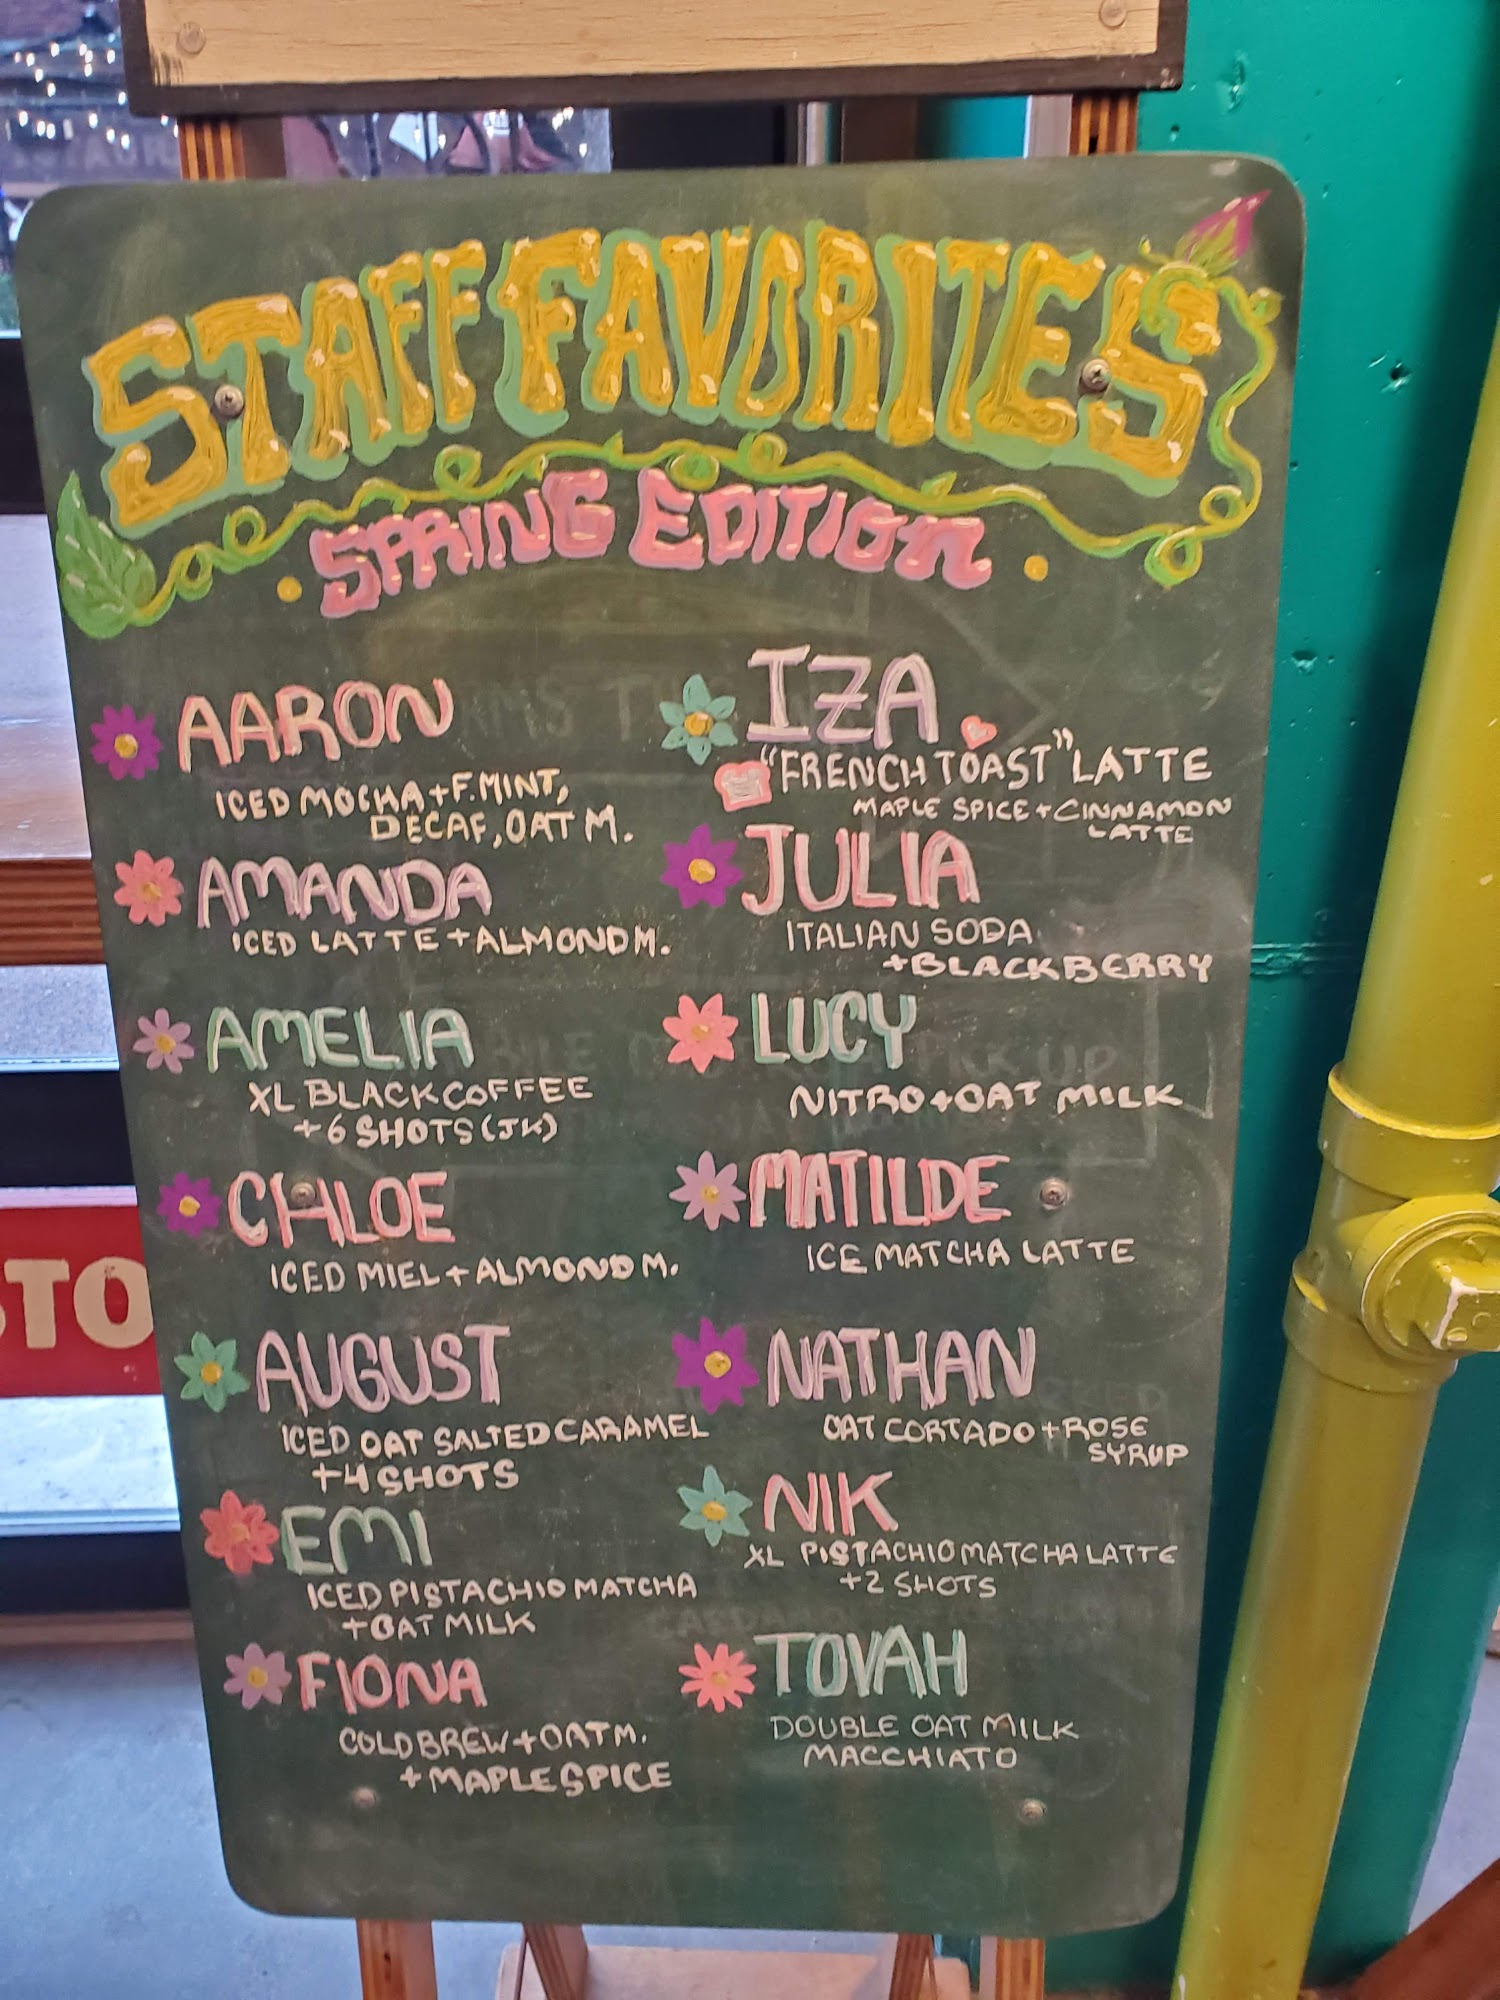 STAFF FAVORITES
SPRING EDITION
AARON
ICED MOCHA + F. MINT,
DECAF, OAT M.
AMANDA
ICED LATTE + ALMOND M.
AMELIA
XL BLACK COFFEE
+ 6 SHOTS (JK)
CHLOE
ICED MIEL + ALMOND M.
AUGUST
ICED OAT SALTED CARAMEL
+ 4 SHOTS
EMI
ICED PISTACHIO MATCHA
+ OAT MILK
FIONA
COLD BREW + OAT M.
+ MAPLE SPICE
IZA
"FRENCH TOAST" LATTE
MAPLE SPICE + CINNAMON
LATTE
JULIA
ITALIAN SODA
+ BLACKBERRY
LUCY
NITRO + OAT MILK
MATILDE
ICE MATCHA LATTE
NATHAN
OAT CORTADO + ROSE
SYRUP
NIK
XL PISTACHIO MATCHA LATTE
+ 2 SHOTS
TOVAH
DOUBLE OAT MILK
MACCHIATO
STO